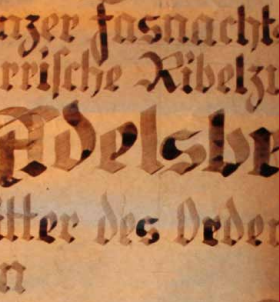 nzer Fasnacht
rrische Ribelzu
Adelsbr
itter des Orden
n